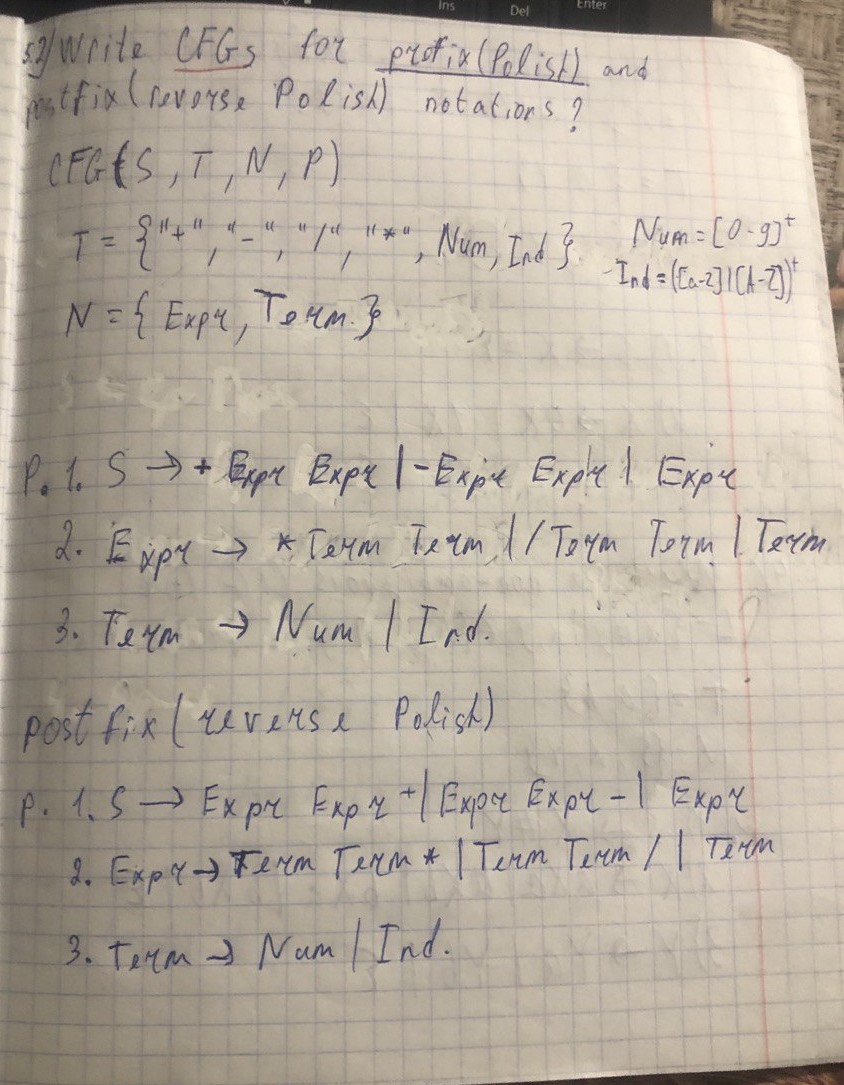 Ins Del Enter
5.2) Write CFGs for prefix (Polish) and
postfix (reverse Polish) notations?
CFG (S, T, N, P)
T = {"+", "-", "/", "*", Num, Ind}. Num = [0-9]⁺
Ind = ([a-z]|[A-Z])⁺
N = { Expr, Term.}
P. 1. S → + Expr Expr | - Expr Expr | Expr
2. Expr → * Term Term | / Term Term | Term
3. Term → Num / Ind.
postfix (reverse Polish)
P. 1. S → Expr Expr + | Expr Expr - | Expr
2. Expr → Term Term * | Term Term / | Term
3. Term → Num / Ind.